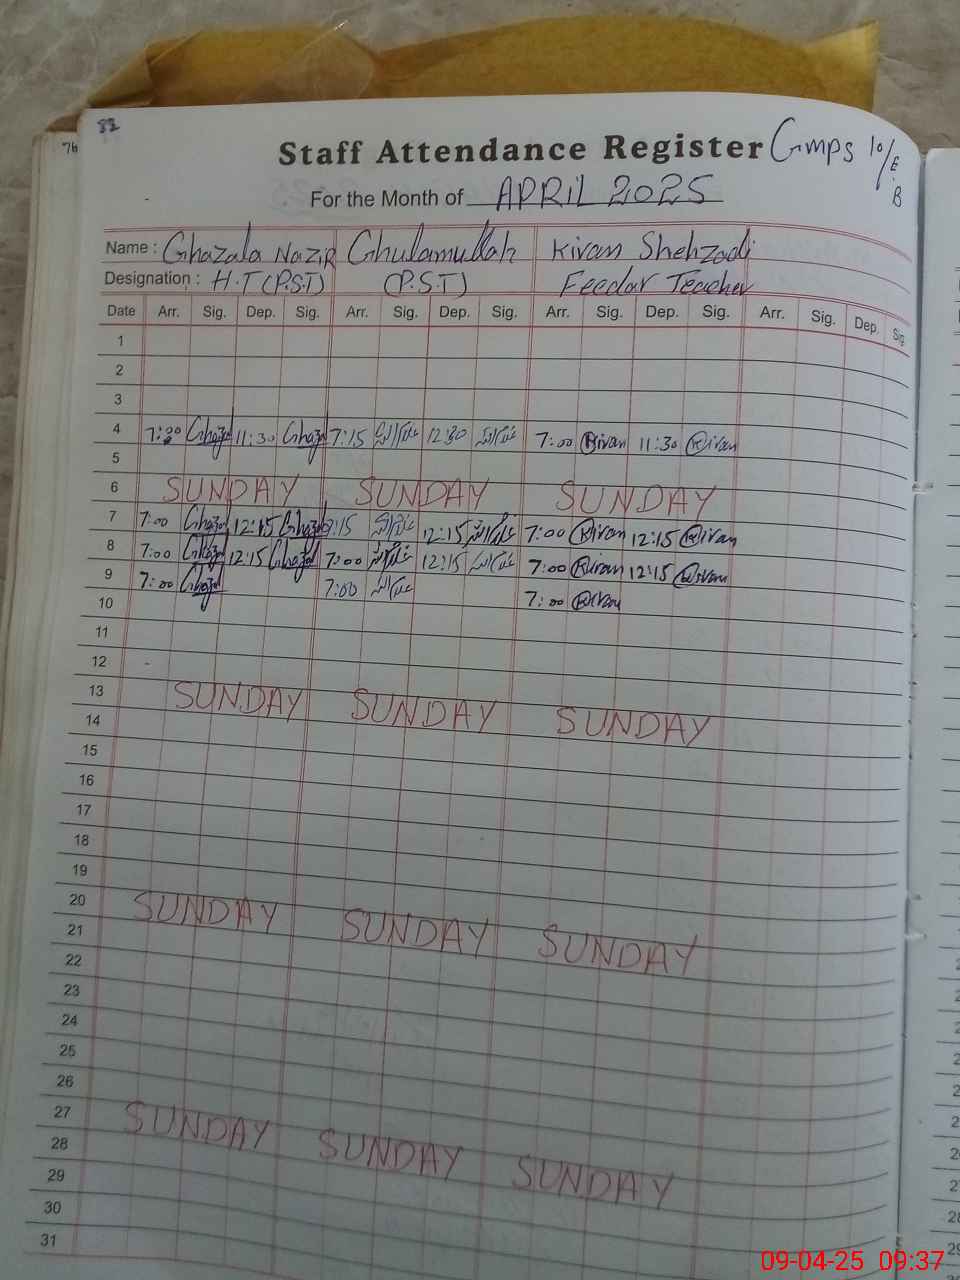 82
76
Staff Attendance Register Gmps 10/E.B
For the Month of APRIL 2025
Name : Ghazala Nazir Ghulamullah Kiran Shehzadi
Designation : H.T (P.S.T) (P.S.T) Feedar Teacher
Date Arr. Sig. Dep. Sig. Arr. Sig. Dep. Sig. Arr. Sig. Dep. Sig. Arr. Sig. Dep. Sig
1
2
3
4 7:00 Ghazal 11:30 Ghazal 7:15 12:30 7:00 Kiran 11:30 Kiran
5
6 SUNDAY SUNDAY SUNDAY
7 7:00 Ghazal 12:15 Ghazal :15 12:15 7:00 Kiran 12:15 Kiran
8 7:00 Ghazal 12:15 Ghazal 7:00 12:15 7:00 Kiran 12:15 Kiran
9 7:00 Ghazal 7:00 7:00 Kiran
10
11
12
13 SUNDAY SUNDAY SUNDAY
14
15
16
17
18
19
20 SUNDAY SUNDAY SUNDAY
21
22
23
24
25
26
27 SUNDAY SUNDAY SUNDAY
28
29
30
31
09-04-25 09:37